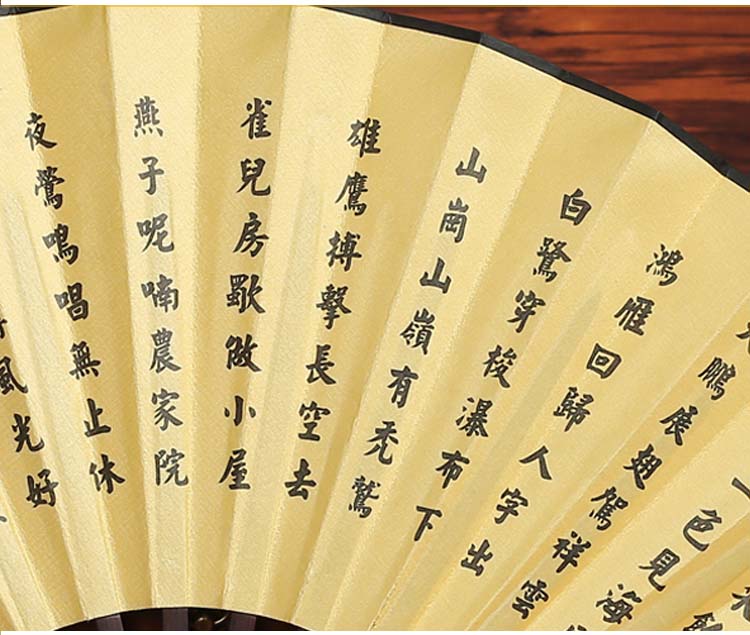 一色見海
大鵬展翅駕祥雲
鴻雁回歸人字出
白鷺穿梭瀑布下
山崗山嶺有禿鷲
雄鷹搏擊長空去
雀兒房歇做小屋
燕子呢喃農家院
夜鶯鳴唱無止休
風光好